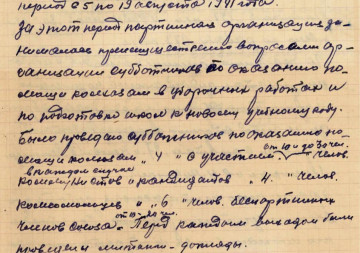 период с 5 по 19 августа 1941 года.
За этот период партийная организация за-
нималась преимущественно вопросами ор-
ганизации субботников по оказанию по-
мощи колхозам в уборочных работах и
по подготовке школ к новому учебному году.
Было проведено субботников по оказанию по-
от 10 и до 30 чел.
мощи колхозам „ 4 „ с участием чело.
в каждом случае
коммунистов и кандидатов „ 4. " чело.
комсомольцев „ 6 " чело. беспартийных
от 10 - 20 чел.
членов союза. Перед каждым выходом были
проведены митинги - доклады.